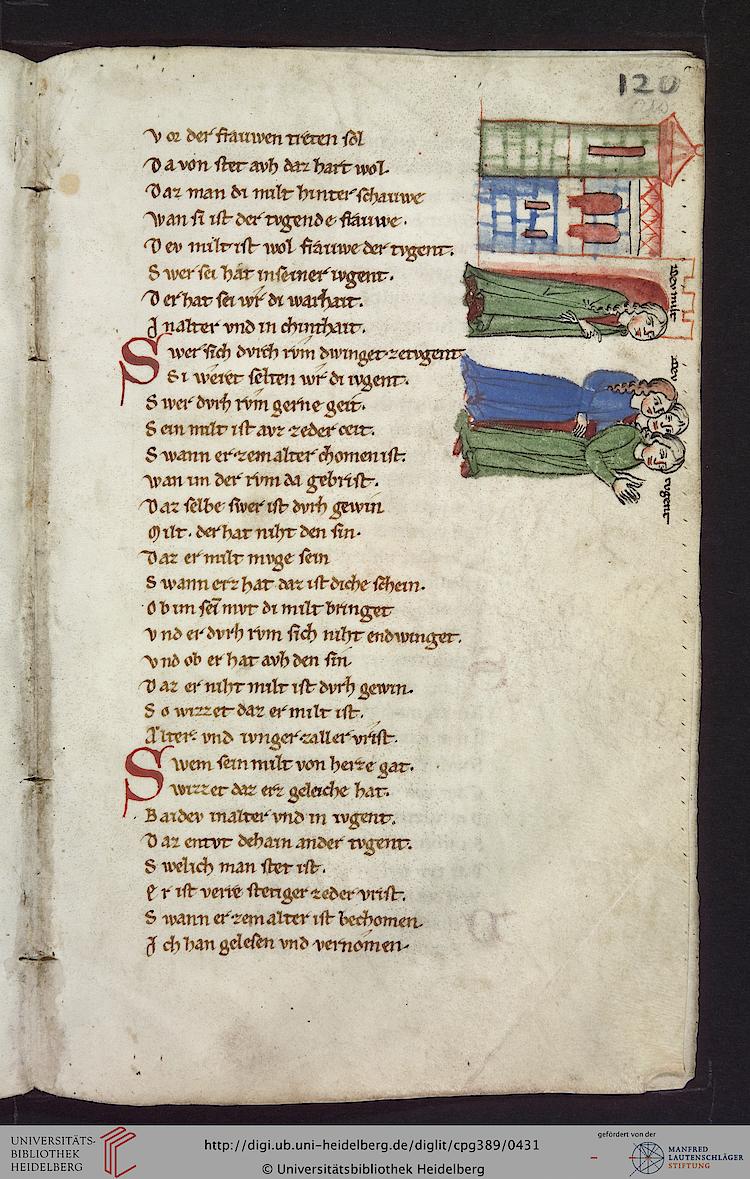 120
210
Vor der frauwen treten sol
Da von stet avh daz hart wol.
Daz man di milt hinter schauwe
Wan si ist der tvgende frauwe.
Dev milt ist wol frauwe der tvgent.
Swer sei hat in seiner ivgent.
Der hat sei wr di warhait.
In alter vnd in chinthait.
Swer sich dvrch rvm dwinget ze tvgent
Si weret selten wr di ivgent.
Swer dvrh rvm gerne geit.
Sein milt ist avz ze der ceit.
Swann er zem alter chomen ist.
wan im der rvm da gebrist.
Daz selbe swer ist dvrh gewin
Milt. der hat niht den sin.
Daz er milt mvge sein
Swann erz hat daz ist diche schein.
Ob im sei mvt di milt bringet
vnd er dvrh rvm sich niht endwinget.
vnd ob er hat avh den sin
Daz er niht milt ist dvrh gewin.
So wizzet daz er milt ist.
Alter vnd ivnger zaller vrist.
Swem sein milt von herze gat.
wizzet daz erz geleiche hat.
Baidev in alter vnd in ivgent.
Daz entvt dehain ander tvgent.
Swelich man stet ist.
Er ist verre stetiger ze der vrist.
Swann er zem alter ist bechomen
Ich han gelesen vnd vernomen.
dev milt
dev
tvgent
UNIVERSITÄTS-
BIBLIOTHEK
HEIDELBERG
http://digi.ub.uni-heidelberg.de/diglit/cpg389/0431
© Universitätsbibliothek Heidelberg
gefördert von der
MANFRED
LAUTENSCHLÄGER
STIFTUNG